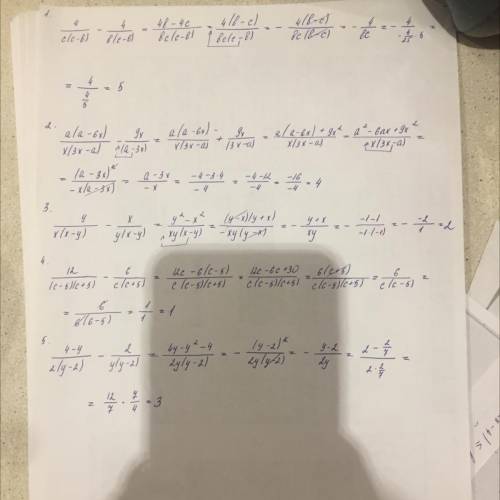 1.
4/c(c-b) - 4/b(c-b) = 4b-4c/bc(c-b) = 4(b-c)/bc(c-b) = - 4(b-c)/bc(b-c) = - 4/bc =
= 4/(4/5) = 5
2.
a(a-6x)/x(3x-a) - 9x/(a-3x) = a(a-6x)/x(3x-a) + 9x/(3x-a) = a(a-6x)+9x²/x(3x-a) = a²-6ax+9x²/x(3x-a) =
= (a-3x)²/-x(a-3x) = a-3x/-x = -4-3·4/-4 = -4-12/-4 = -16/-4 = 4
3.
y/x(x-y) - x/y(x-y) = y²-x²/xy(x-y) = (y-x)(y+x)/-xy(y-x) = - y+x/xy = - -1-1/-1(-1) = - -2/1 = 2
4.
12/(c-5)(c+5) - 6/c(c+5) = 12c-6(c-5)/c(c-5)(c+5) = 12c-6c+30/c(c-5)(c+5) = 6(c+5)/c(c-5)(c+5) = 6/c(c-5) =
= 6/6(6-5) = 1/1 = 1
5.
4-y/2(y-2) - 2/y(y-2) = 4y-y²-4/2y(y-2) = - (y-2)²/2y(y-2) = - y-2/2y =
= 12/7 · 7/4 = 3